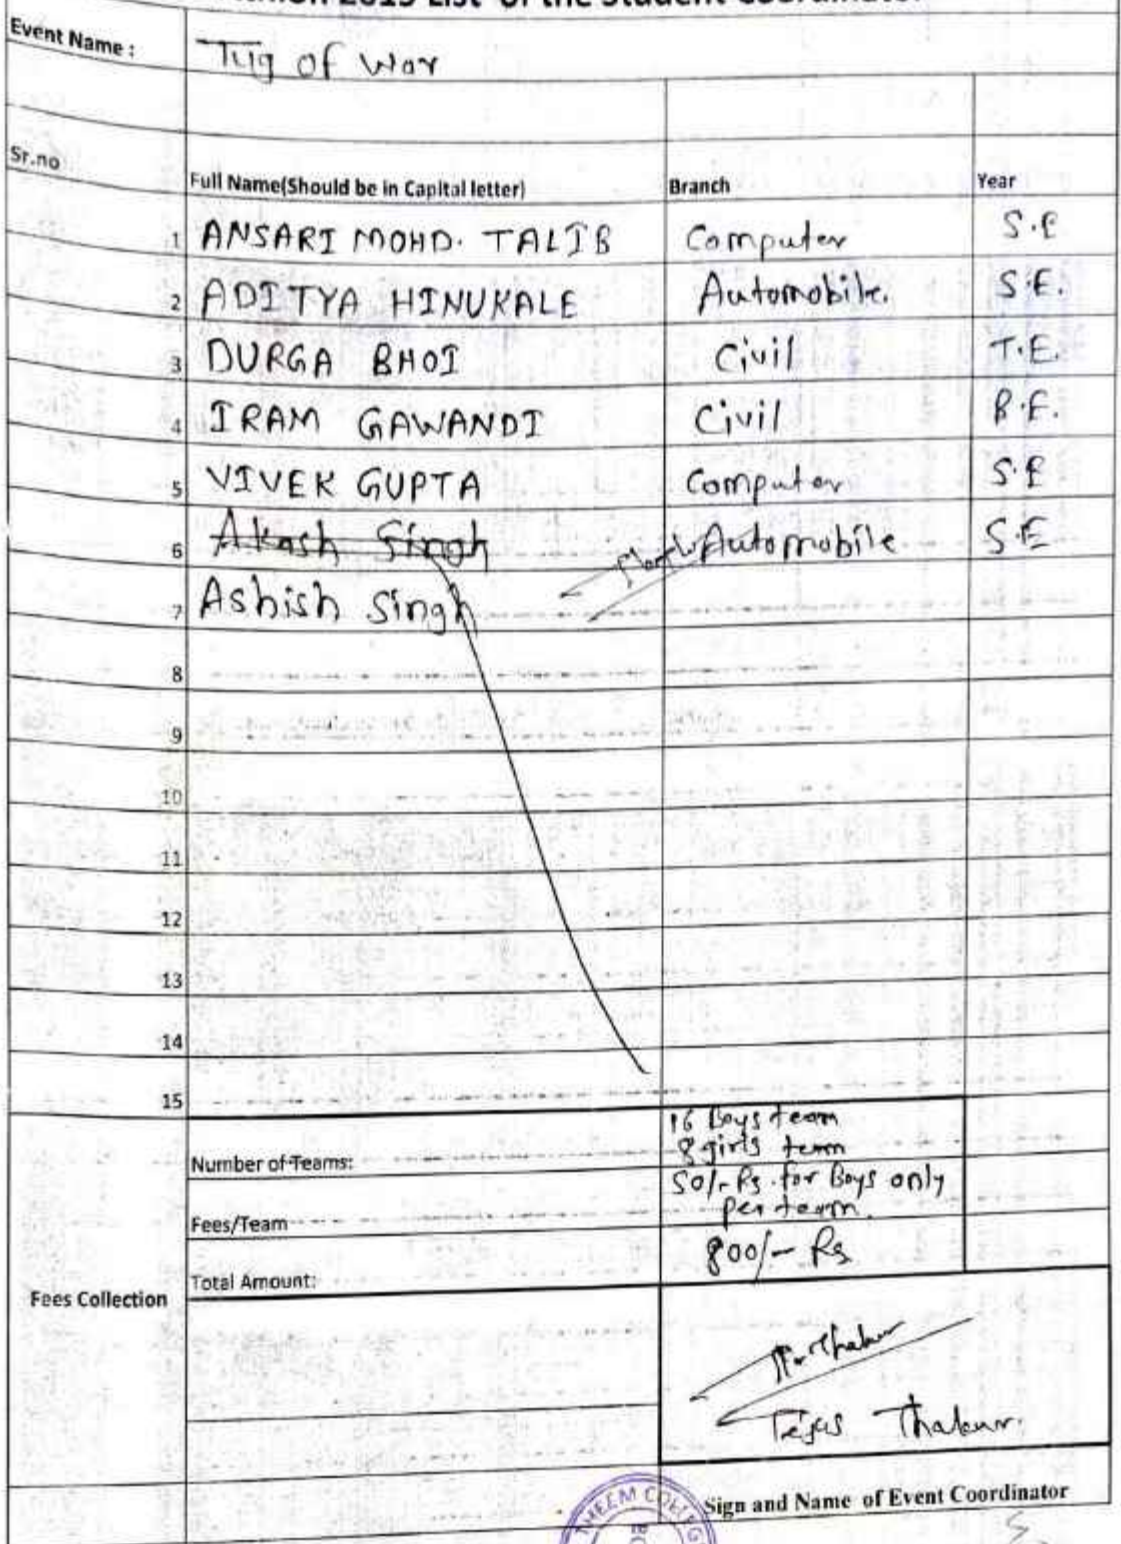 2019 List of the Student Coordinator
Event Name :
Tug of War
Sr.no Full Name(Should be in Capital letter) Branch Year
1 ANSARI MOHD. TALIB Computer S.E
2 ADITYA HINUKALE Automobile. S.E.
3 DURGA BHOI Civil T.E.
4 IRAM GAWANDI Civil B.E.
5 VIVEK GUPTA Computer S.E
6 Akash Singh Automobile S.E
7 Ashish Singh
8
9
10
11
12
13
14
15
16 Boys team
8 girls team
Number of Teams:
50/- Rs. for Boys only
per team.
Fees/Team
800/- Rs
Total Amount:
Fees Collection
Thakur
Tejas Thakur.
Sign and Name of Event Coordinator
THEEM COLLEGE